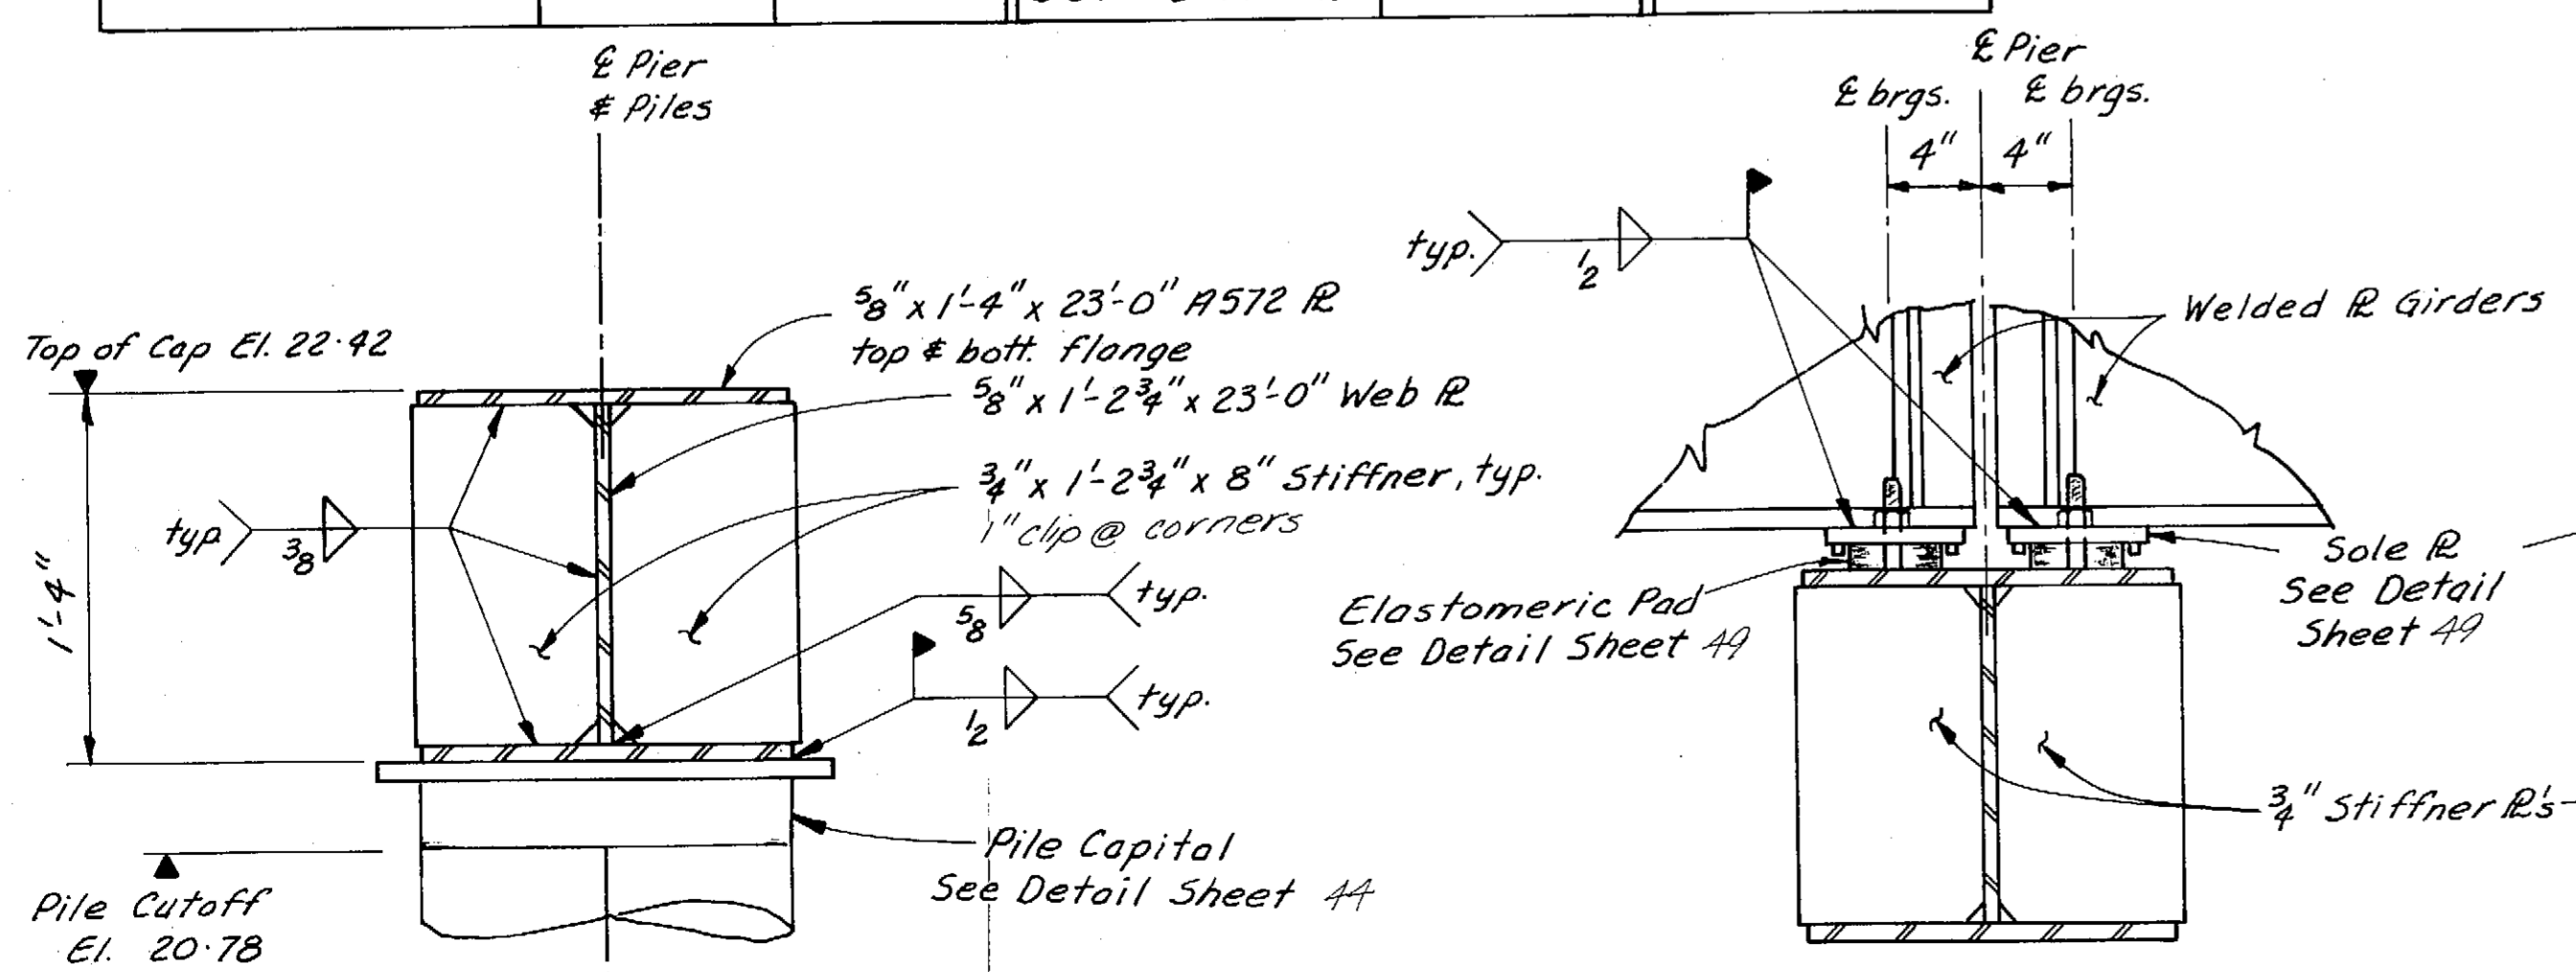 ℄ Pier
& Piles
Top of Cap El. 22.42
5/8" x 1'-4" x 23'-0" A572 ℞
top & bott. flange
5/8" x 1'-2 3/4" x 23'-0" Web ℞
3/4" x 1'-2 3/4" x 8" Stiffner, typ.
1" clip @ corners
typ.
3/8
1'-4"
5/8
typ.
1/2
typ.
Pile Capital
See Detail Sheet 44
Pile Cutoff
El. 20.78
℄ Pier
℄ brgs.
℄ brgs.
4"
4"
typ.
1/2
Welded ℞ Girders
Elastomeric Pad
See Detail Sheet 49
Sole ℞
See Detail
Sheet 49
3/4" Stiffner ℞'s